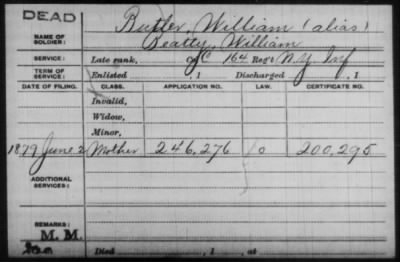 DEAD
Butler, William (alias)
NAME OF SOLDIER: Beatty, William
SERVICE: Late rank, C 164 Reg't N.Y. Inf
TERM OF SERVICE: Enlisted , 1 Discharged , 1
DATE OF FILING. CLASS. APPLICATION NO. LAW. CERTIFICATE NO.
Invalid,
Widow,
Minor,
1879 June 2 Mother 246,276 200,295
ADDITIONAL SERVICES:
REMARKS:
M. M.
Died , 1 , at